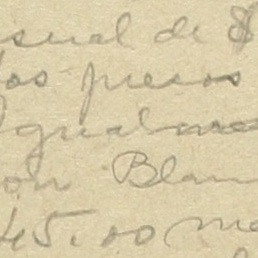 sual de $
los pesos
Igualme
on Blan
45.00 me